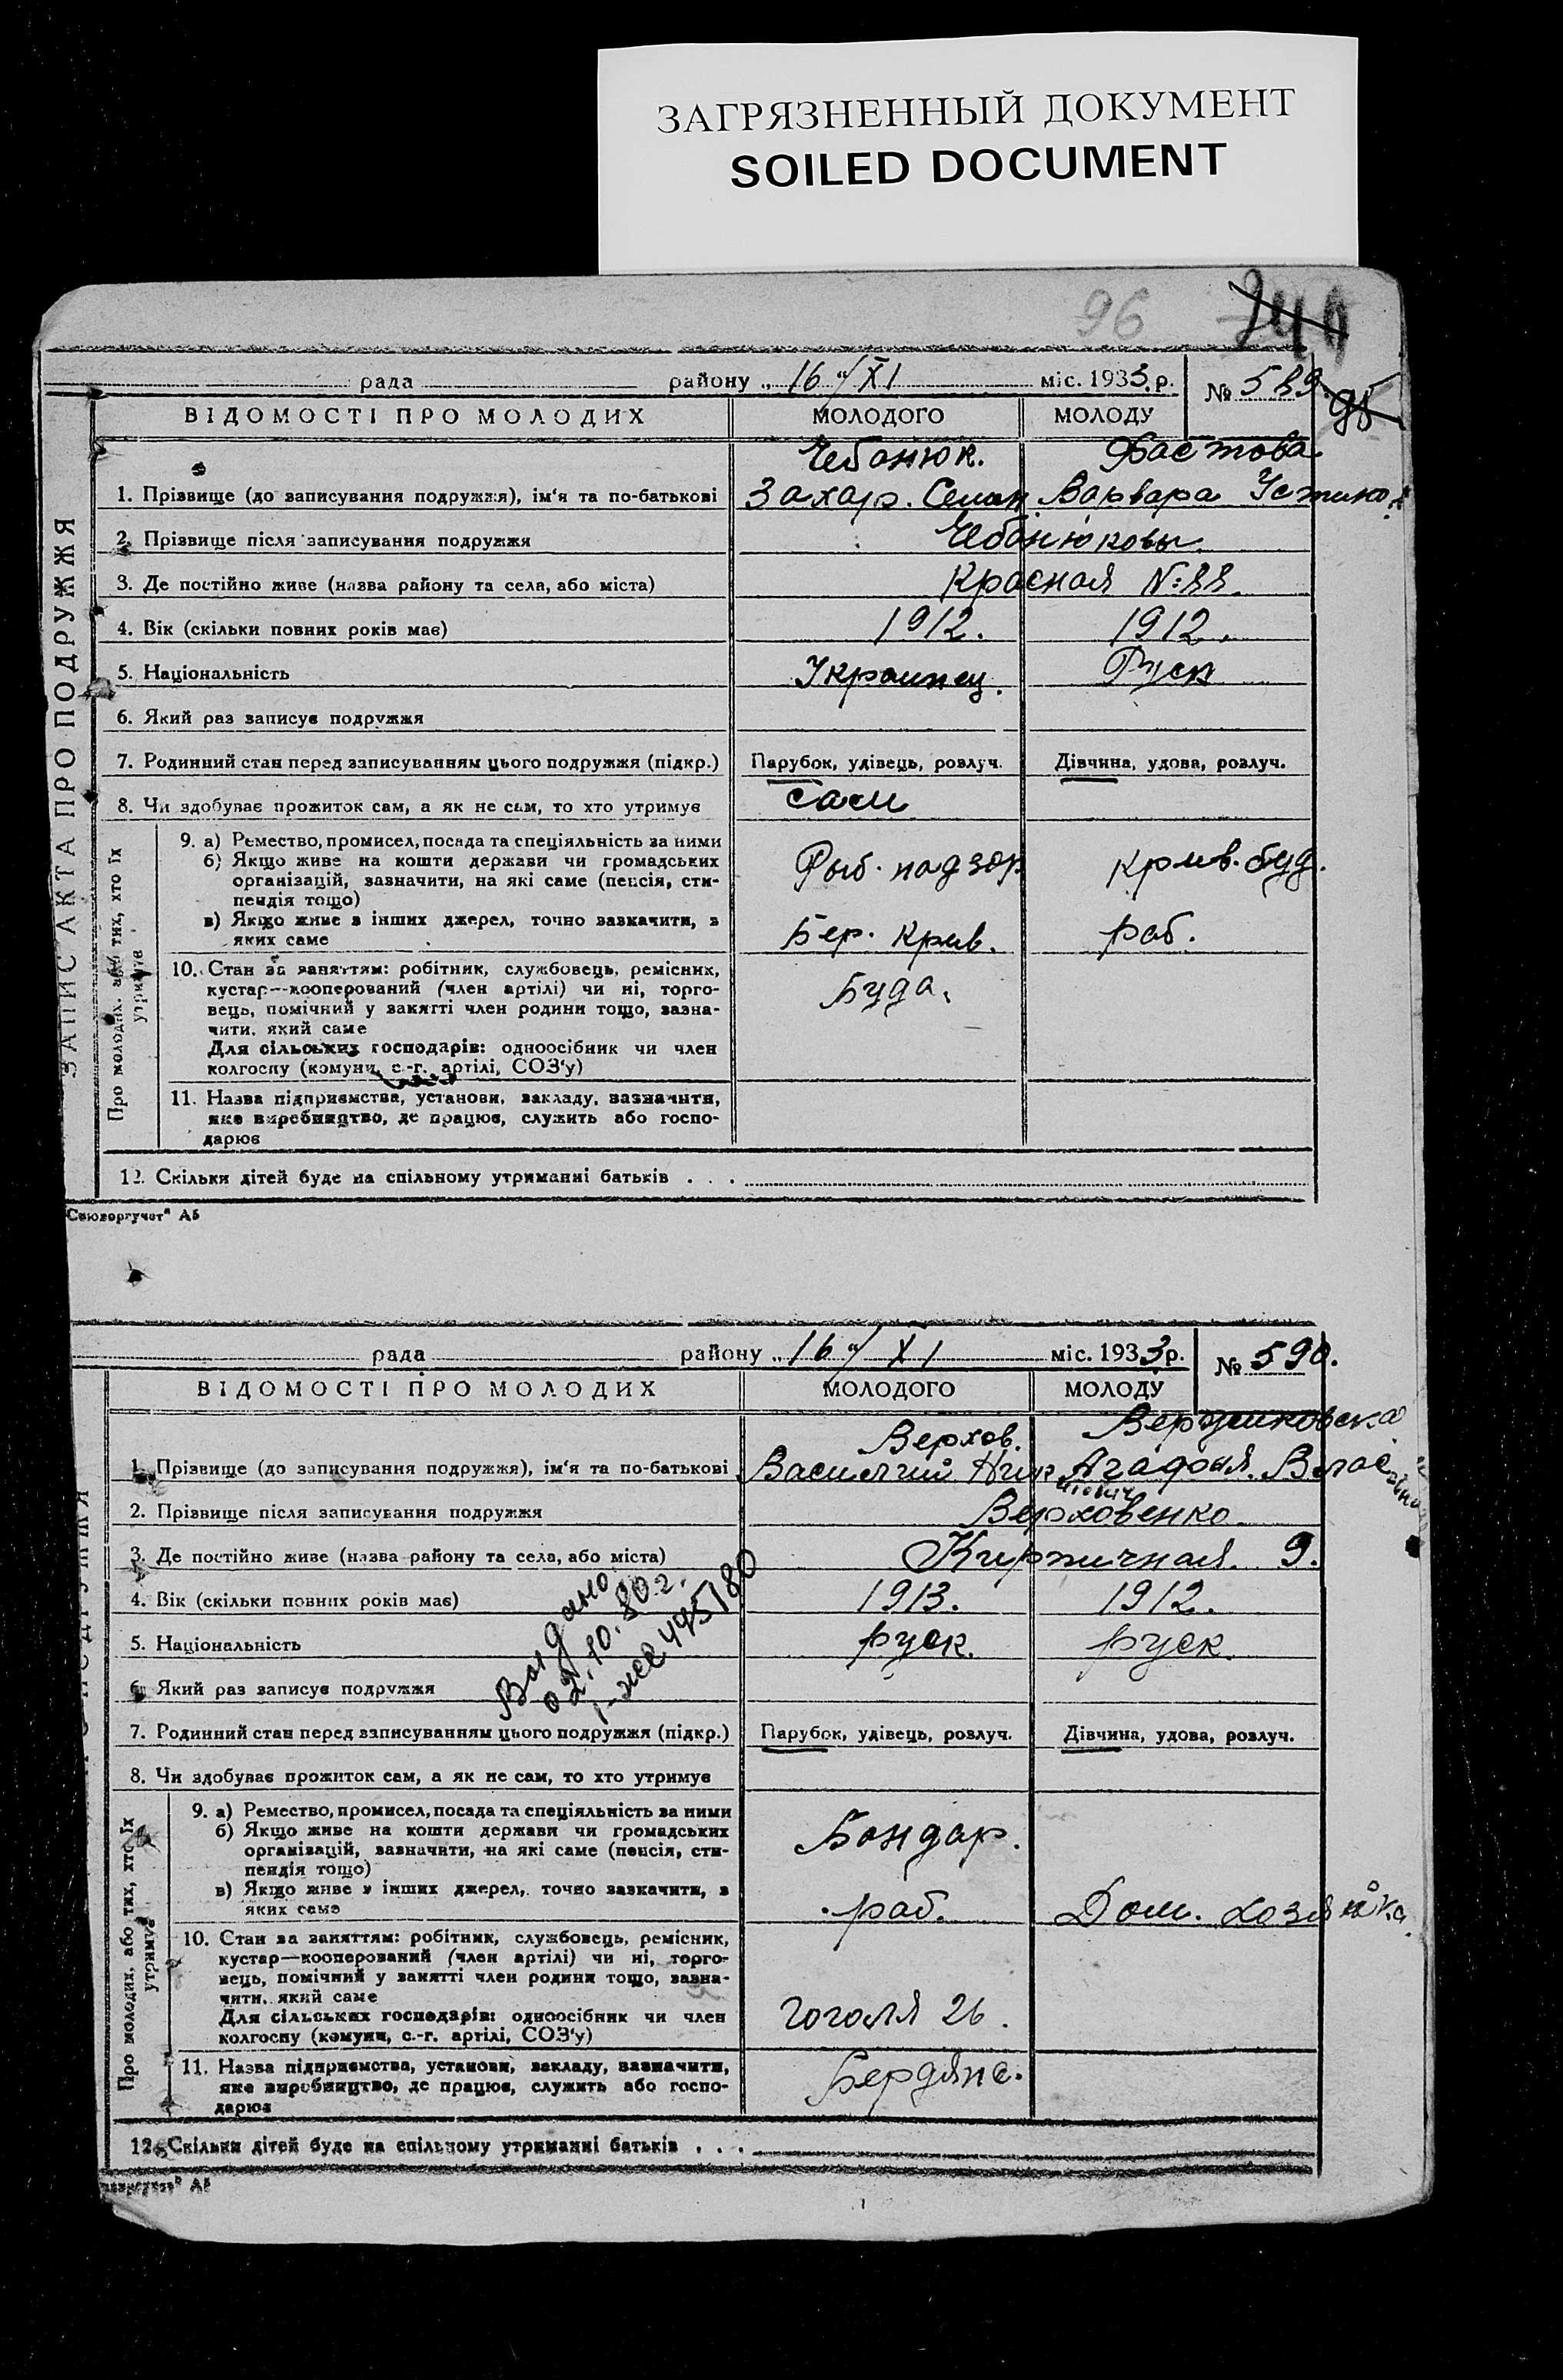 ЗАГРЯЗНЕННЫЙ ДОКУМЕНТ
SOILED DOCUMENT
96
рада району „16“ XI міс. 1933 р. № 589.
95
ЗАПИС АКТА ПРО ПОДРУЖЖЯ
ВІДОМОСТІ ПРО МОЛОДИХ МОЛОДОГО МОЛОДУ
Чебанюк. Фастова
1. Прізвище (до записування подружжя), ім‘я та по-батькові Захар. Семен. Варвара Устинов.
2. Прізвище після записування подружжя Чебанюковы.
3. Де постійно живе (назва району та села, або міста) Красная №88.
4. Вік (скільки повних років має) 1912. 1912.
5. Національність Украинец. Руск
6. Який раз записує подружжя
7. Родинний стан перед записуванням цього подружжя (підкр.) Парубок, удівець, розлуч. Дівчина, удова, розлуч.
8. Чи здобуває прожиток сам, а як не сам, то хто утримує сами
Про молодих, або тих, хто їх утримує
9. а) Ремество, промисел, посада та спеціяльність за ними
б) Якщо живе на кошти держави чи громадських Рыб. надзор крив. буд.
організацій, зазначити, на які саме (пенсія, сти-
пендія тощо)
в) Якщо живе з інших джерел, точно зазначити, з Бер. крив. раб.
яких саме
10. Стан за заняттям: робітник, службовець, ремісник,
кустар—кооперований (член артілі) чи ні, торго- Буда.
вець, помічний у занятті член родини тощо, зазна-
чити, який саме
Для сільських господарів: одноосібник чи член
колгоспу (комуни, с.-г. артілі, СОЗ‘у)
11. Назва підприємства, установи, закладу, зазначити,
яке виробництво, де працює, служить або госпо-
дарює
12. Скільки дітей буде на спільному утриманні батьків . . .
Союзоргучет“ А5
рада району „16“ XI міс. 1933 р. № 590.
ВІДОМОСТІ ПРО МОЛОДИХ МОЛОДОГО МОЛОДУ
Верхов.
1. Прізвище (до записування подружжя), ім‘я та по-батькові Василий Агафья.
2. Прізвище після записування подружжя Верховенко
3. Де постійно живе (назва району та села, або міста) Кирпичная 9.
4. Вік (скільки повних років має) 1913. 1912.
5. Національність руск. руск.
Выдано
02.10.80г.
495/80
6. Який раз записує подружжя
7. Родинний стан перед записуванням цього подружжя (підкр.) Парубок, удівець, розлуч. Дівчина, удова, розлуч.
8. Чи здобуває прожиток сам, а як не сам, то хто утримує
Про молодих, або тих, хто їх утримує
9. а) Ремество, промисел, посада та спеціяльність за ними
б) Якщо живе на кошти держави чи громадських Бондар.
організацій, зазначити, на які саме (пенсія, сти-
пендія тощо)
в) Якщо живе з інших джерел, точно зазначити, з раб. Дом. хозяйка.
яких саме
10. Стан за заняттям: робітник, службовець, ремісник,
кустар—кооперований (член артілі) чи ні, торго-
вець, помічний у занятті член родини тощо, зазна-
чити, який саме
Для сільських господарів: одноосібник чи член Гоголя 26.
колгоспу (комуни, с.-г. артілі, СОЗ‘у)
11. Назва підприємства, установи, закладу, зазначити, Бердянс.
яке виробництво, де працює, служить або госпо-
дарює
12. Скільки дітей буде на спільному утриманні батьків . . .
А5